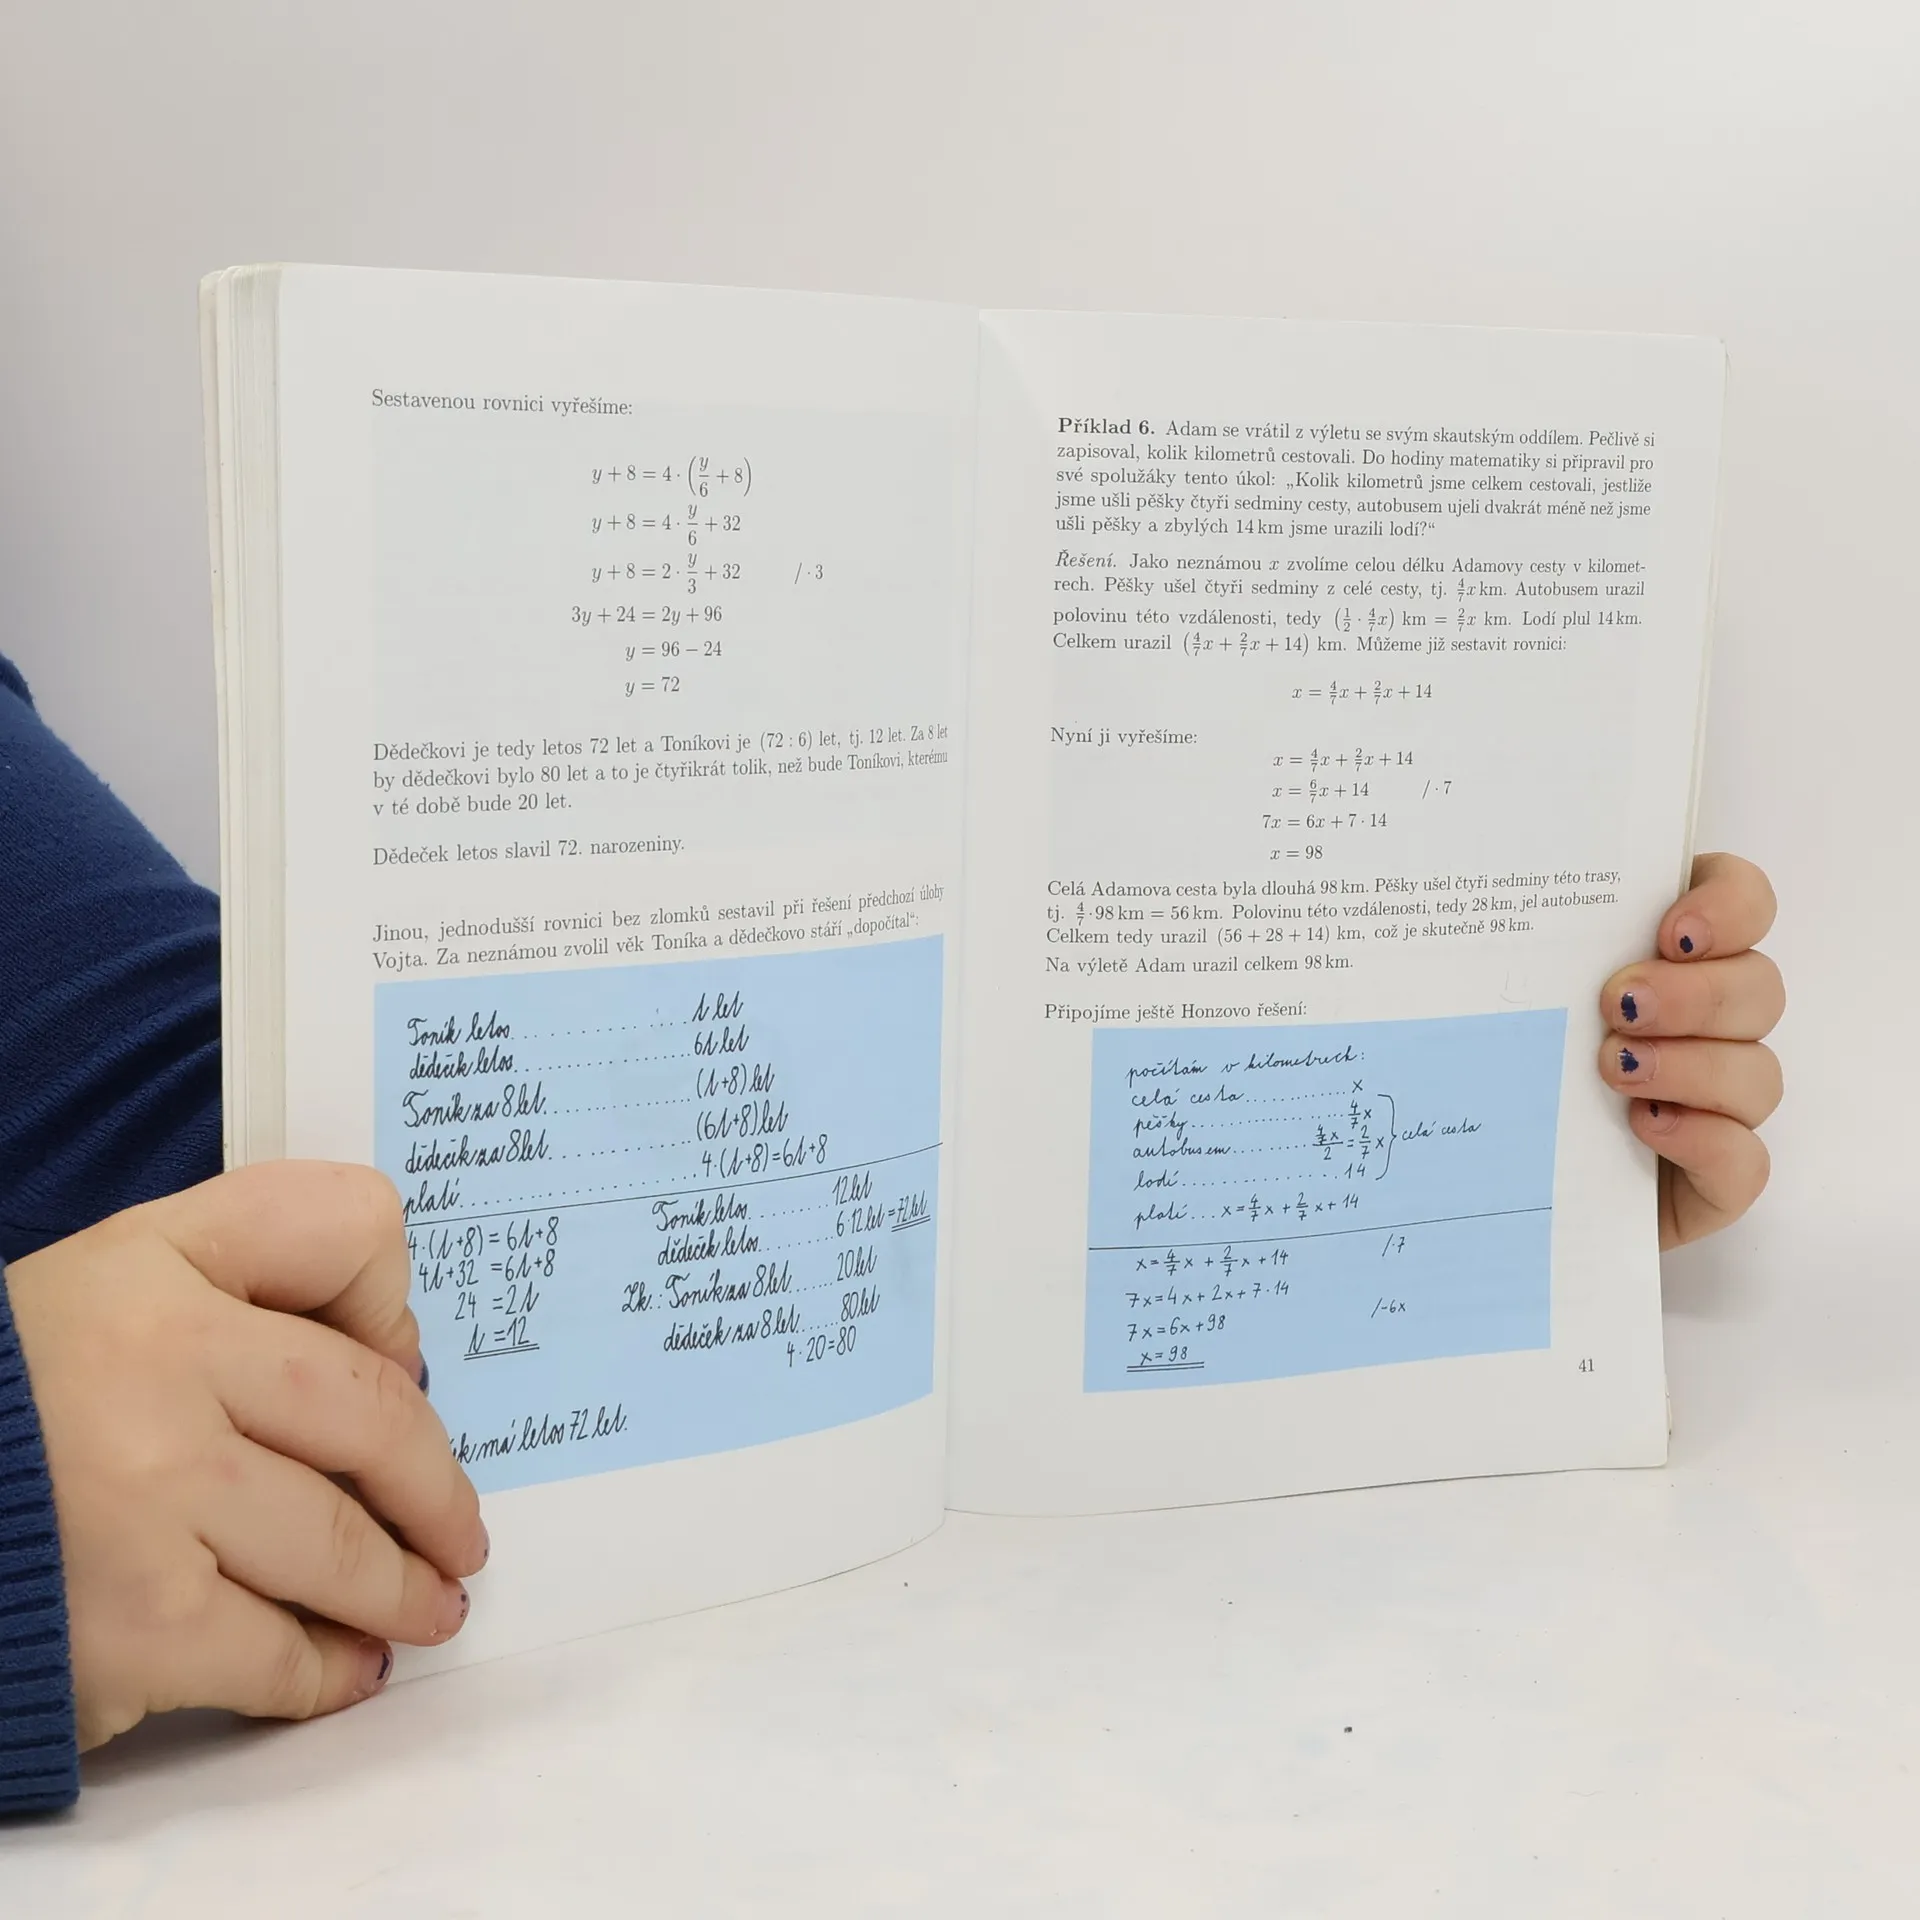 Sestavenou rovnici vyřešíme:
y + 8 = 4 · (y/6 + 8)
y + 8 = 4 · y/6 + 32
y + 8 = 2 · y/3 + 32 / · 3
3y + 24 = 2y + 96
y = 96 − 24
y = 72
Dědečkovi je tedy letos 72 let a Toníkovi je (72 : 6) let, tj. 12 let. Za 8 let
by dědečkovi bylo 80 let a to je čtyřikrát tolik, než bude Toníkovi, kterému
v té době bude 20 let.
Dědeček letos slavil 72. narozeniny.
Jinou, jednodušší rovnici bez zlomků sestavil při řešení předchozí úlohy
Vojta. Za neznámou zvolil věk Toníka a dědečkovo stáří „dopočítal“:
Toník letos ........ t let
dědeček letos ........ 6t let
Toník za 8 let ........ (t+8) let
dědeček za 8 let ........ (6t+8) let
platí ........ 4·(t+8)=6t+8
4·(t+8)=6t+8
4t+32=6t+8
24=2t
t=12
Toník letos ........ 12 let
dědeček letos ........ 6·12 let=72 let
Zk.: Toník za 8 let ...... 20 let
dědeček za 8 let ...... 80 let
4·20=80
má letos 72 let.
Příklad 6. Adam se vrátil z výletu se svým skautským oddílem. Pečlivě si
zapisoval, kolik kilometrů cestovali. Do hodiny matematiky si připravil pro
své spolužáky tento úkol: „Kolik kilometrů jsme celkem cestovali, jestliže
jsme ušli pěšky čtyři sedminy cesty, autobusem ujeli dvakrát méně než jsme
ušli pěšky a zbylých 14 km jsme urazili lodí?“
Řešení. Jako neznámou x zvolíme celou délku Adamovy cesty v kilomet-
rech. Pěšky ušel čtyři sedminy z celé cesty, tj. 4/7x km. Autobusem urazil
polovinu této vzdálenosti, tedy (1/2 · 4/7x) km = 2/7x km. Lodí plul 14 km.
Celkem urazil (4/7x + 2/7x + 14) km. Můžeme již sestavit rovnici:
x = 4/7x + 2/7x + 14
Nyní ji vyřešíme:
x = 4/7x + 2/7x + 14
x = 6/7x + 14 / · 7
7x = 6x + 7 · 14
x = 98
Celá Adamova cesta byla dlouhá 98 km. Pěšky ušel čtyři sedminy této trasy,
tj. 4/7 · 98 km = 56 km. Polovinu této vzdálenosti, tedy 28 km, jel autobusem.
Celkem tedy urazil (56 + 28 + 14) km, což je skutečně 98 km.
Na výletě Adam urazil celkem 98 km.
Připojíme ještě Honzovo řešení:
počítám v kilometrech:
celá cesta ............ x
pěšky ............ 4/7 x
autobusem ........ (4/7 x)/2 = 2/7 x } celá cesta
lodí ............ 14
platí ... x = 4/7 x + 2/7 x + 14
x = 4/7 x + 2/7 x + 14 /·7
7x = 4x + 2x + 7·14
7x = 6x + 98 /-6x
x = 98
41